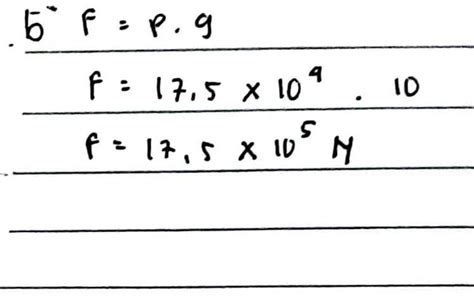 5. F = P . g
F = 17,5 × 10⁴ . 10
F = 17,5 × 10⁵ N